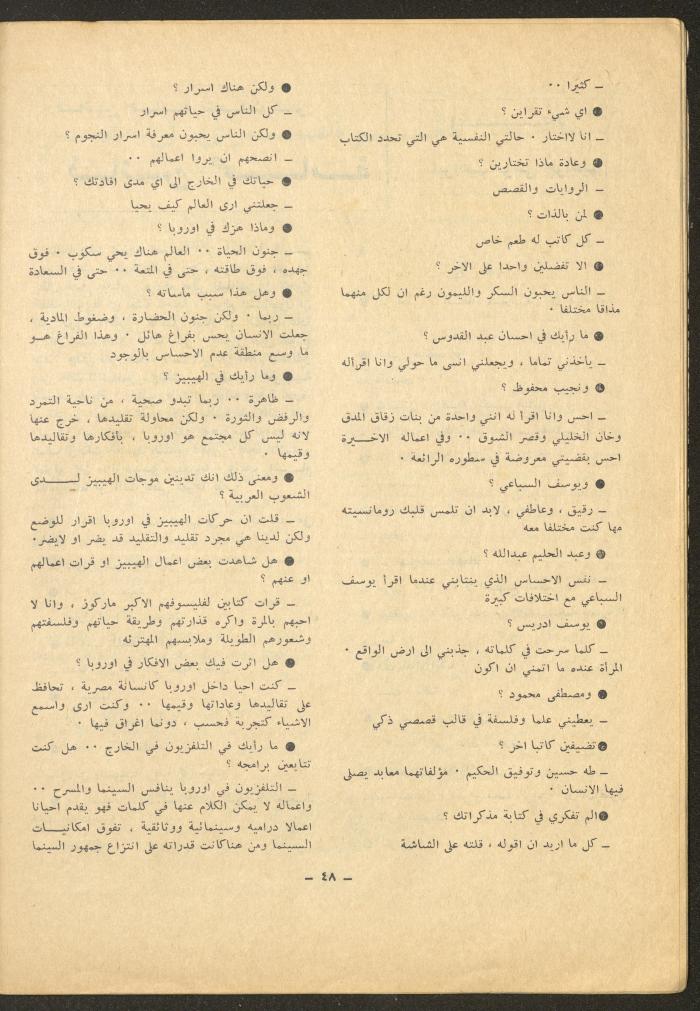 ـ كثيرا ٠٠
● اي شيء تقراين ؟
ـ انا لااختار ٠ حالتي النفسية هي التي تحدد الكتاب
● وعادة ماذا تختارين ؟
ـ الروايات والقصص
● لمن بالذات ؟
ـ كل كاتب له طعم خاص
● الا تفضلين واحدا على الاخر ؟
ـ الناس يحبون السكر والليمون رغم ان لكل منهما
مذاقا مختلفا ٠
● ما رأيك في احسان عبد القدوس ؟
ـ ياخذني تماما ، ويجعلني انسى ما حولي وانا اقرأله
● ونجيب محفوظ ؟
ـ احس وانا اقرأ له انني واحدة من بنات زقاق المدق
وخان الخليلي وقصر الشوق ٠٠ وفي اعماله الاخـــيرة
احس بقضيتي معروضة في سطوره الرائعة ٠
● ويوسف السباعي ؟
ـ رقيق ، وعاطفي ، لابد ان تلمس قلبك رومانسيته
مها كنت مختلفا معه
● وعبد الحليم عبدالله ؟
ـ نفس الاحساس الذي ينتابني عندما اقرأ يوسف
السباعي مع اختلافات كبيرة
● يوسف ادريس ؟
ـ كلما سرحت في كلماته ، جذبني الى ارض الواقع ٠
المرأة عنده ما اتمنى ان اكون
● ومصطفى محمود ؟
ـ يعطيني علما وفلسفة في قالب قصصي ذكي
● تضيفين كاتبا اخر ؟
ـ طه حسين وتوفيق الحكيم ٠ مؤلفاتهما معابد يصلى
فيها الانسان ٠
● الم تفكري في كتابة مذكراتك ؟
ـ كل ما اريد ان اقوله ، قلته على الشاشة
● ولكن هناك اسرار ؟
ـ كل الناس في حياتهم اسرار
● ولكن الناس يحبون معرفة اسرار النجوم ؟
ـ انصحهم ان يروا اعمالهم ٠٠
● حياتك في الخارج الى اي مدى افادتك ؟
ـ جعلتني ارى العالم كيف يحيا
● وماذا هزك في اوروبا ؟
ـ جنون الحياة ٠٠ العالم هناك يحي سكوب ٠ فوق
جهده ، فوق طاقته ، حتى في المتعة ٠٠ حتى في السعادة
● وهل هذا سبب ماساته ؟
ـ ربما ٠ ولكن جنون الحضارة ، وضغوط المادية ،
جعلت الانسان يحس بفراغ هائل ٠ وهذا الفراغ هــو
ما وسع منطقة عدم الاحساس بالوجود
● وما رأيك في الهيبيز ؟
ـ ظاهرة ٠٠ ربما تبدو صحية ، من ناحية التمرد
والرفض والثورة ٠ ولكن محاولة تقليدها ، خرج عنها
لانه ليس كل مجتمع هو اوروبا ، بأفكارها وتقاليدها
وقيمها ٠
● ومعنى ذلك انك تدينين موجات الهيبيز لـــــدى
الشعوب العربية ؟
ـ قلت ان حركات الهيبيز في اوروبا اقرار للوضع
ولكن لدينا هي مجرد تقليد والتقليد قد يضر او لايضر٠
● هل شاهدت بعض اعمال الهيبيز او قرات اعمالهم
او عنهم ؟
ـ قرات كتابين لفليسوفهم الاكبر ماركوز ، وانا لا
احبهم بالمرة واكره قذارتهم وطريقة حياتهم وفلسفتهم
وشعورهم الطويلة وملابسهم المهترئه
● هل اثرت فيك بعض الافكار في اوروبا ؟
ـ كنت احيا داخل اوروبا كانسانة مصرية ، تحافظ
على تقاليدها وعاداتها وقيمها ٠٠ وكنت ارى واسمع
الاشياء كتجربة فحسب ، دونما اغراق فيها ٠
● ما رأيك في التلفزيون في الخارج ٠٠ هل كنت
تتابعين برامجه ؟
ـ التلفزيون في اوروبا ينافس السينما والمسرح ٠٠
واعماله لا يمكن الكلام عنها في كلمات فهو يقدم احيانا
اعمالا دراميه وسينمائية ووثائقية ، تفوق امكانيــات
السينما ومن هناكانت قدراته على انتزاع جمهور السينما
ـ ٤٨ ـ